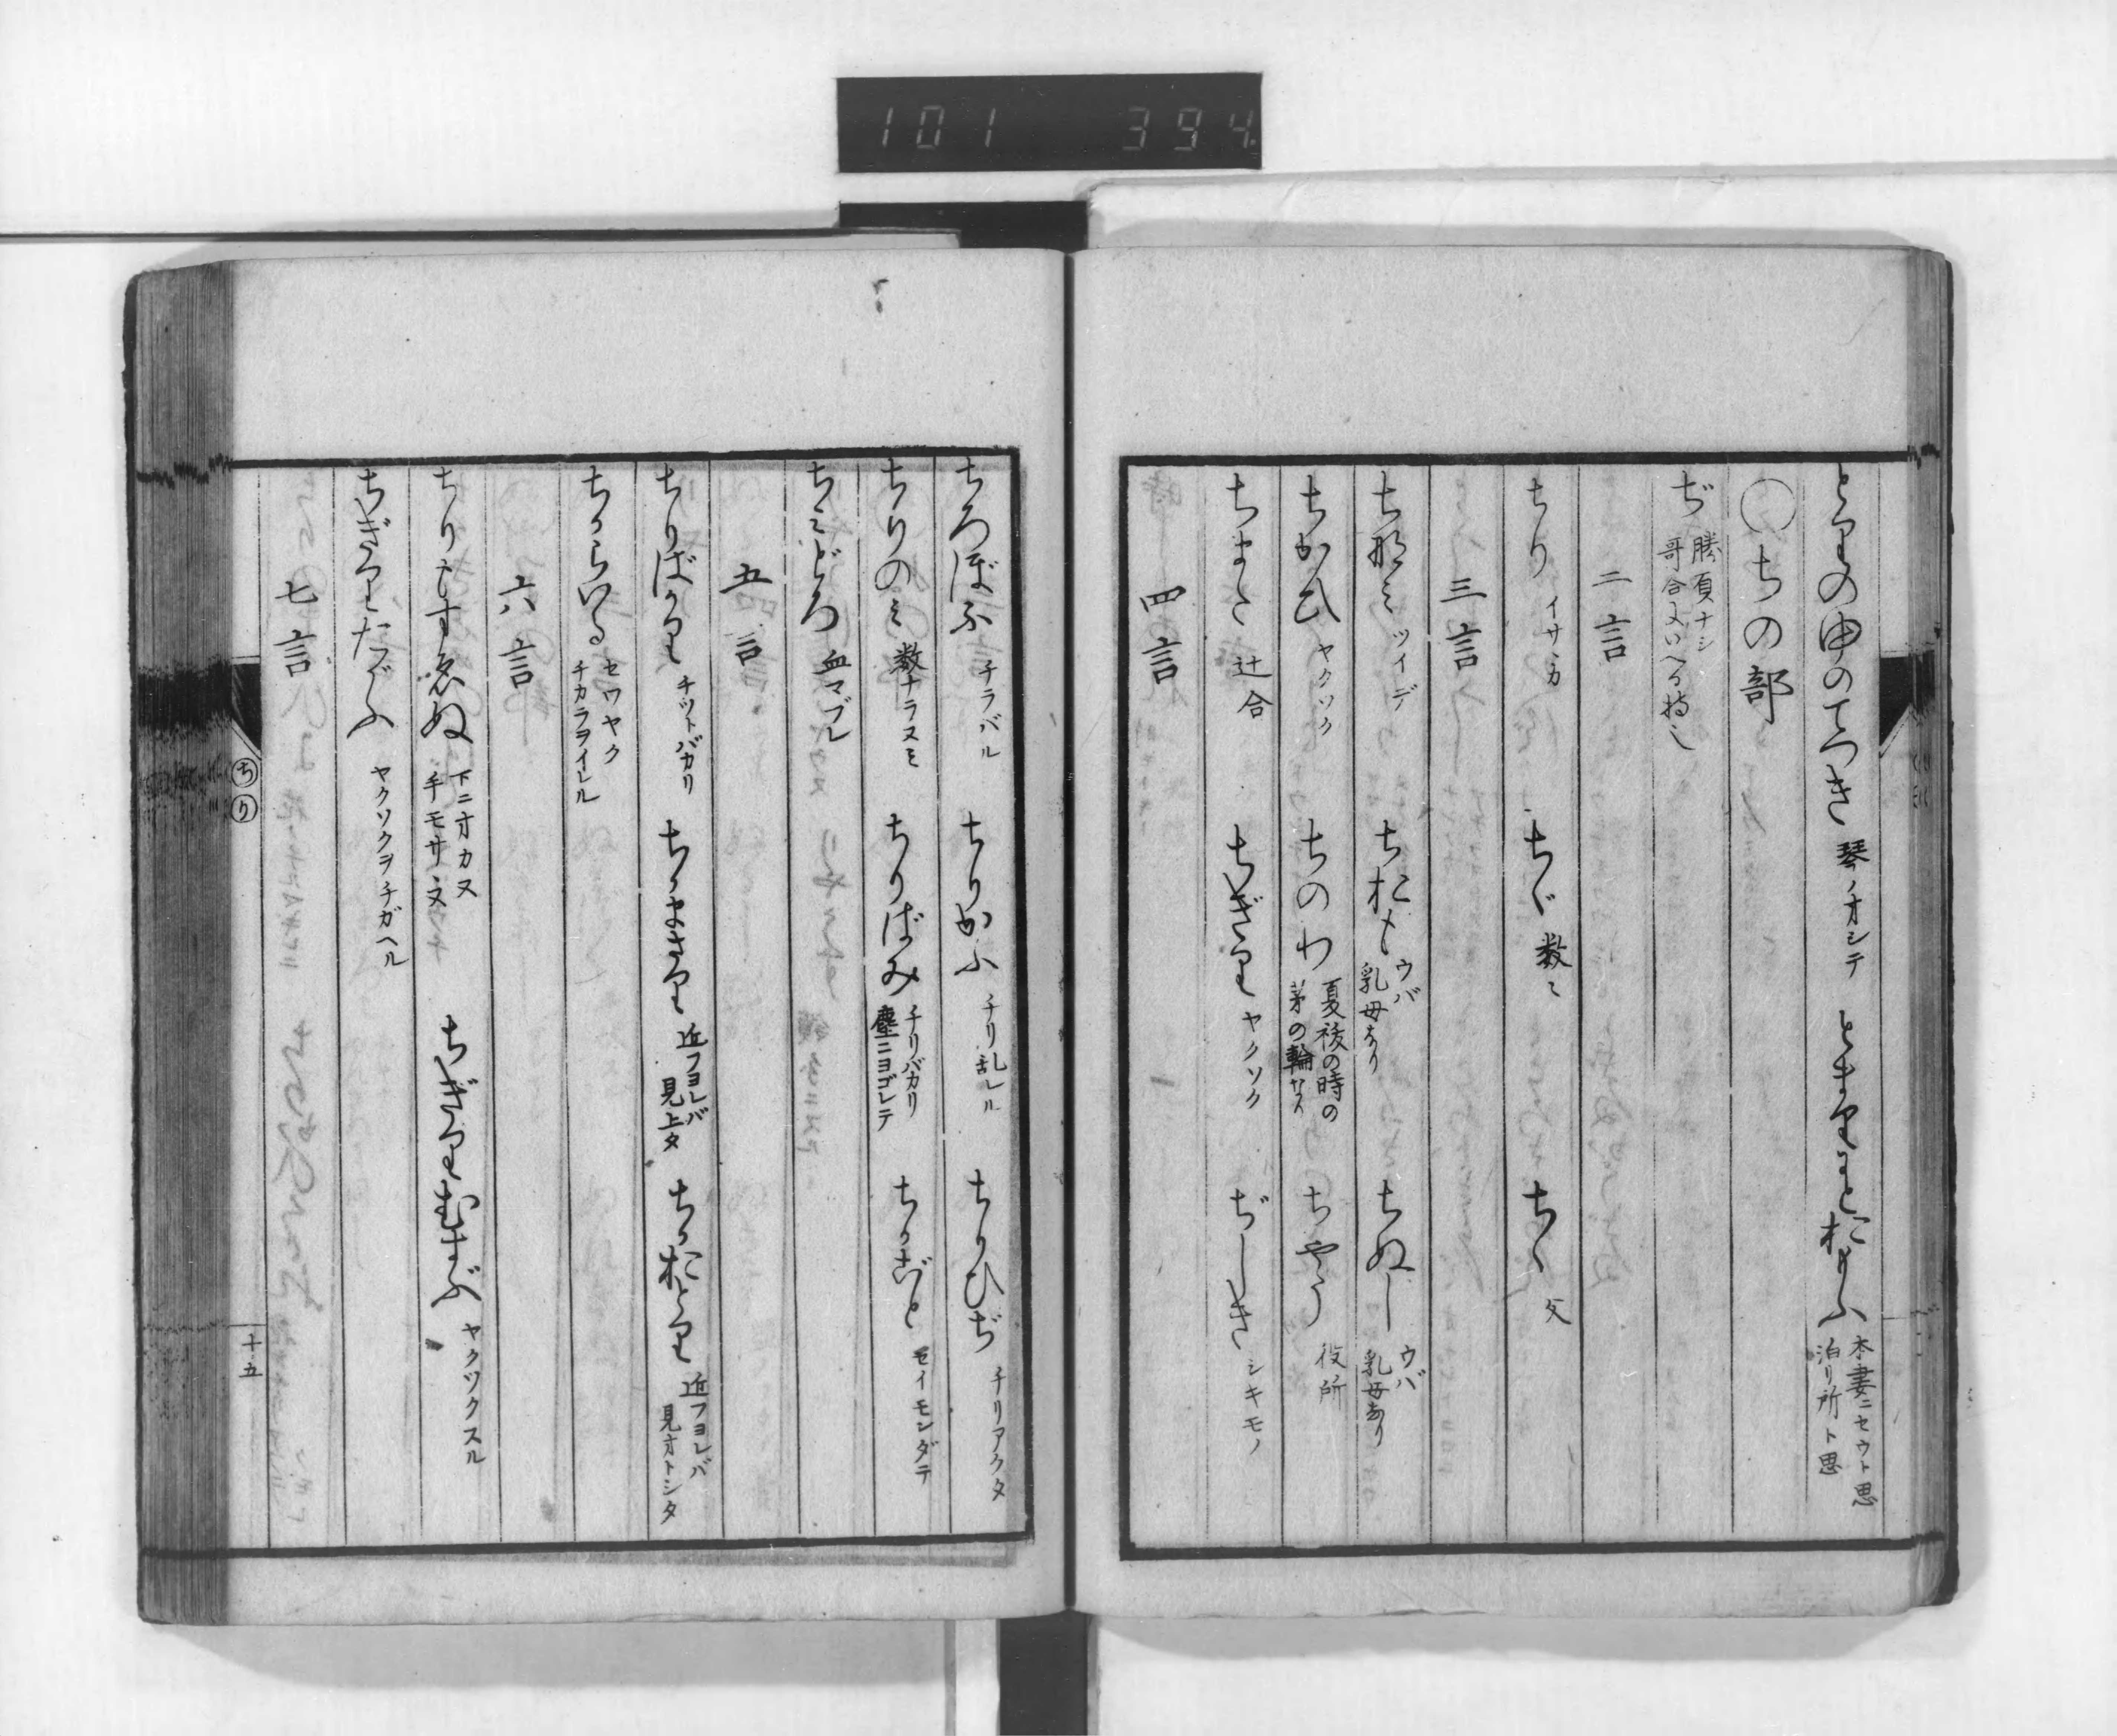 101 394
とりの由のてつき 琴ノオシテ とまりとおもふ 本妻ニセウト思 泊リ所ト思
○ちの部
ぢ 勝負ナシ 哥合ニいへる持也
二言
ちり イサヽカ ちゞ 数〻 ちゝ 父
三言
ち那ミ ツイデ ちおも ウバ 乳母なり ちぬし ウバ 乳母なり
ちかひ ヤクソク ちのわ 夏祓の時の 茅の輪 ちやう 役所
ちまた 辻合 ちぎり ヤクソク ぢしき シキモノ
四言
ちろぼふ チラバル ちりかふ チリ乱レル ちりひぢ チリアクタ
ちりのミ 数ナラヌミ ちりばみ チリバカリ 塵ニヨゴレテ ちかごと セイモンダテ
ちミどろ 血マブレ
五言
ちりばかり チツトバカリ ちかまさり 近フヨレバ 見上タ ちかおとり 近フヨレバ 見オトシタ
ちからいる セワヤク チカラヲイレル
六言
ちりもすゑぬ 下ニオカヌ 手モサヽヌ ちぎりむすぶ ヤクソクスル
ちぎりたがふ ヤクソクヲチガヘル
七言
ちり
十五